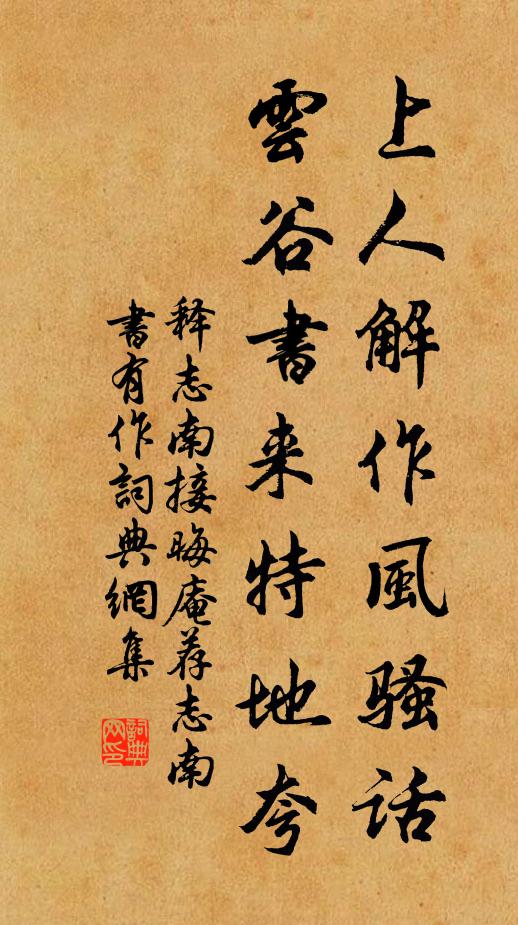 上人解作風騷话
雲谷書来特地夸
释志南接晦庵荐志南
書有作詞典網集
詞典网印